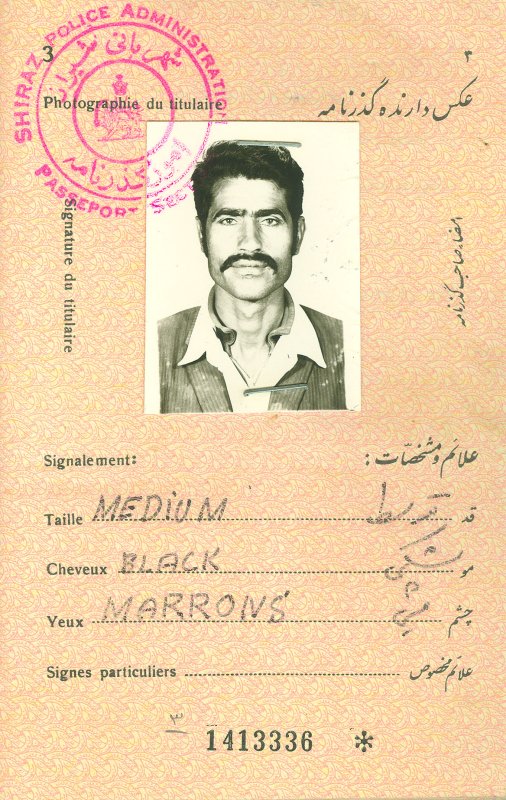 SHIRAZ POLICE ADMINISTRATION
شهربانی شیراز
امور گذرنامه
PASSEPORT SEC
3
۳
Photographie du titulaire
عکس دارنده گذرنامه
Signature du titulaire
امضاء صاحب گذرنامه
Signalement:
علائم و مشخصات :
Taille MEDIUM
قد
Cheveux BLACK
مو مشکی
Yeux MARRONS
چشم میشی
Signes particuliers
علائم مخصوص
۳
1413336 *